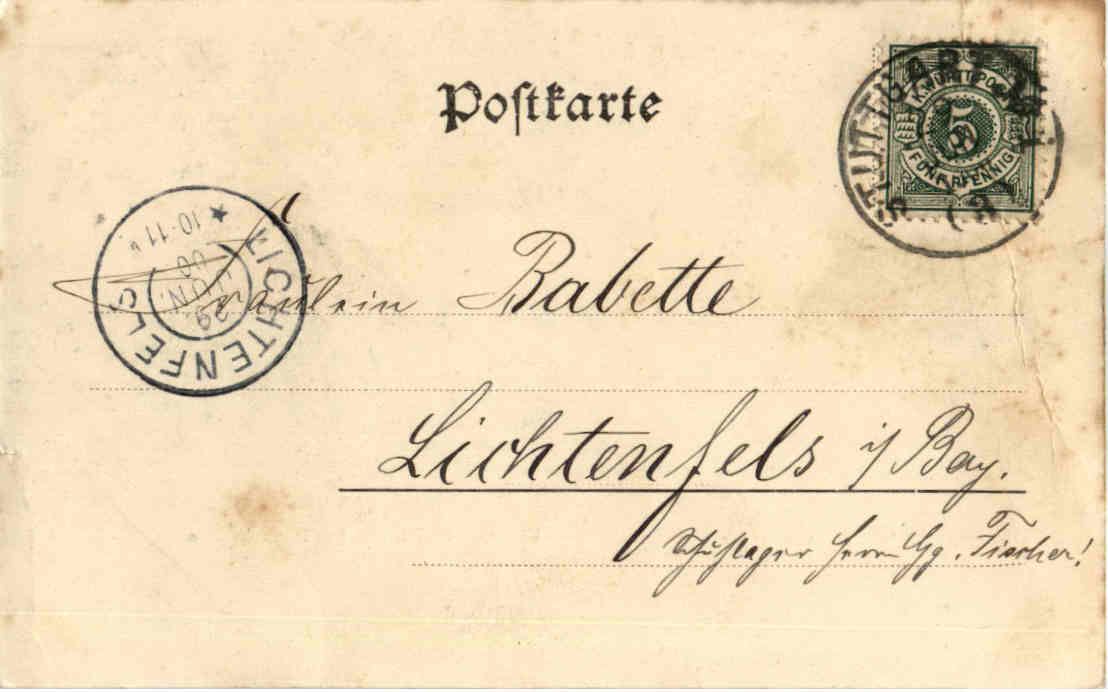 Postkarte
K. WÜRTT. POST
5
FÜNF PFENNIG
STUTTGART
LICHTENFELS
29
JUN.
00
10-11
Fräulein Babette
Lichtenfels i/ Bay.
Schuhlager Herrn Gg. Fischer!